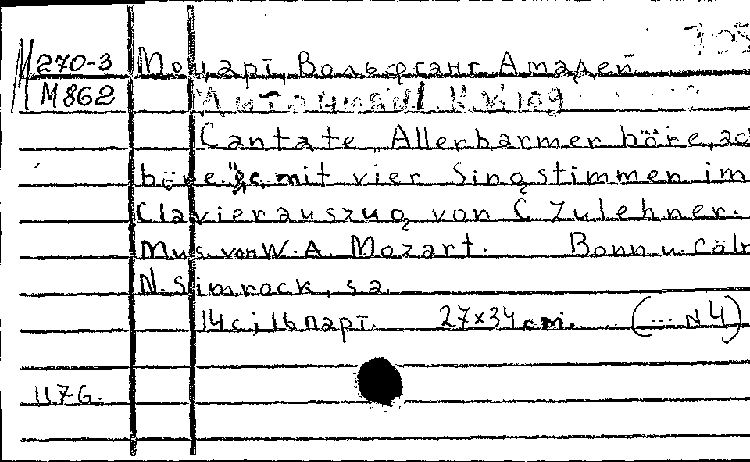 705
М 270-3 Моцарт, Вольфганг Амадей
М862 Литания. K.V. 109
Cantate „Allerbarmer höre, ac
höre" &c mit vier Singstimmen im
Clavierauszug von C Zulehner.
Mus. von W. A. Mozart. Bonn u. Cöln
N. Simrock, s a
14 с; 16 парт. 27x34 cm. (... N 4)
117 G.